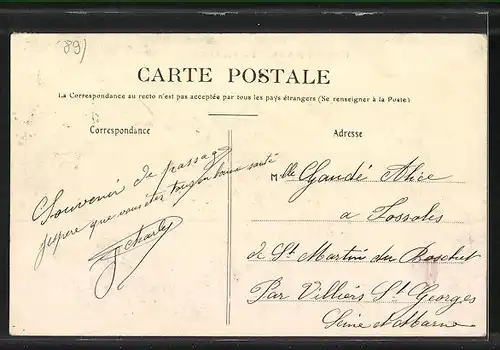 89)
CARTE POSTALE
La Correspondance au recto n'est pas acceptée par tous les pays étrangers (Se renseigner à la Poste)
Correspondance
Adresse
Souvenir de passage
jespere que vous etes toujour bonne santé
Charles
Mlle Gandé Alice
a Fossoles
de St Martin du Boschet
Par Villiers St Georges
Seine et Marne